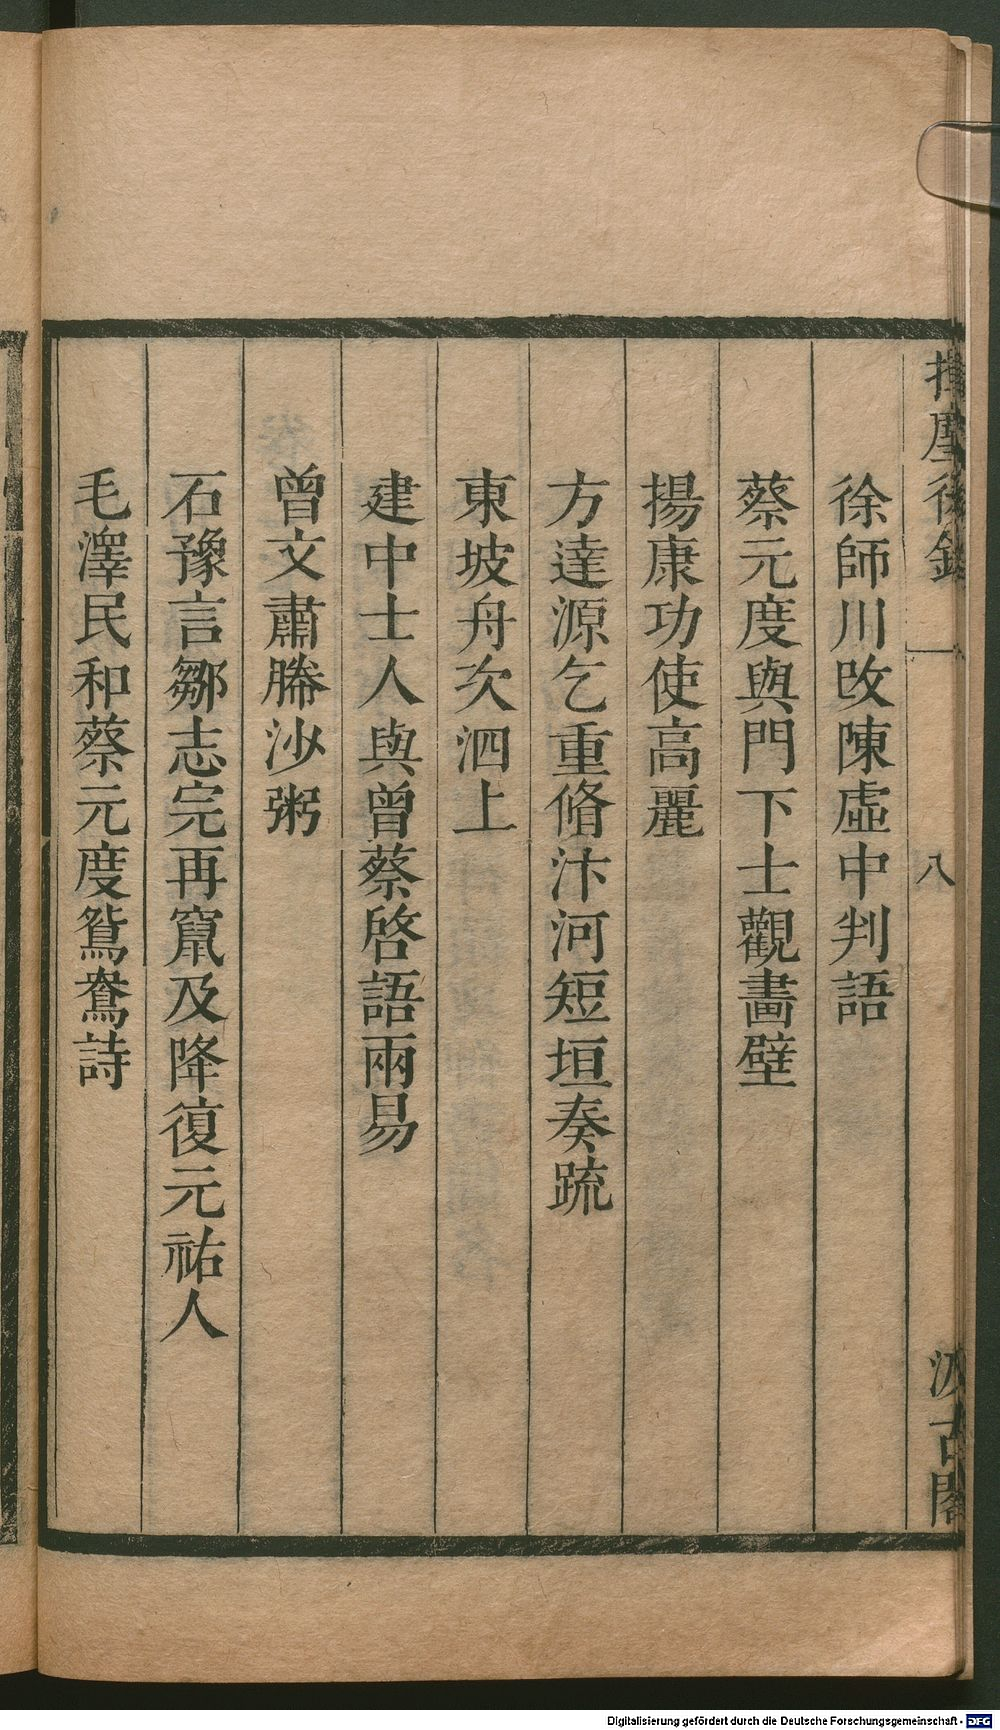 揮麈後錄 一 八 汲古閣
徐師川改陳虛中判語
蔡元度與門下士觀畫壁
揚康功使高麗
方達源乞重脩汴河短垣奏疏
東坡舟次泗上
建中士人與曾蔡啓語兩易
曾文肅幐沙粥
石豫言鄒志完再竄及降復元祐人
毛澤民和蔡元度鴛鴦詩
Digitalisierung gefördert durch die Deutsche Forschungsgemeinschaft - DFG